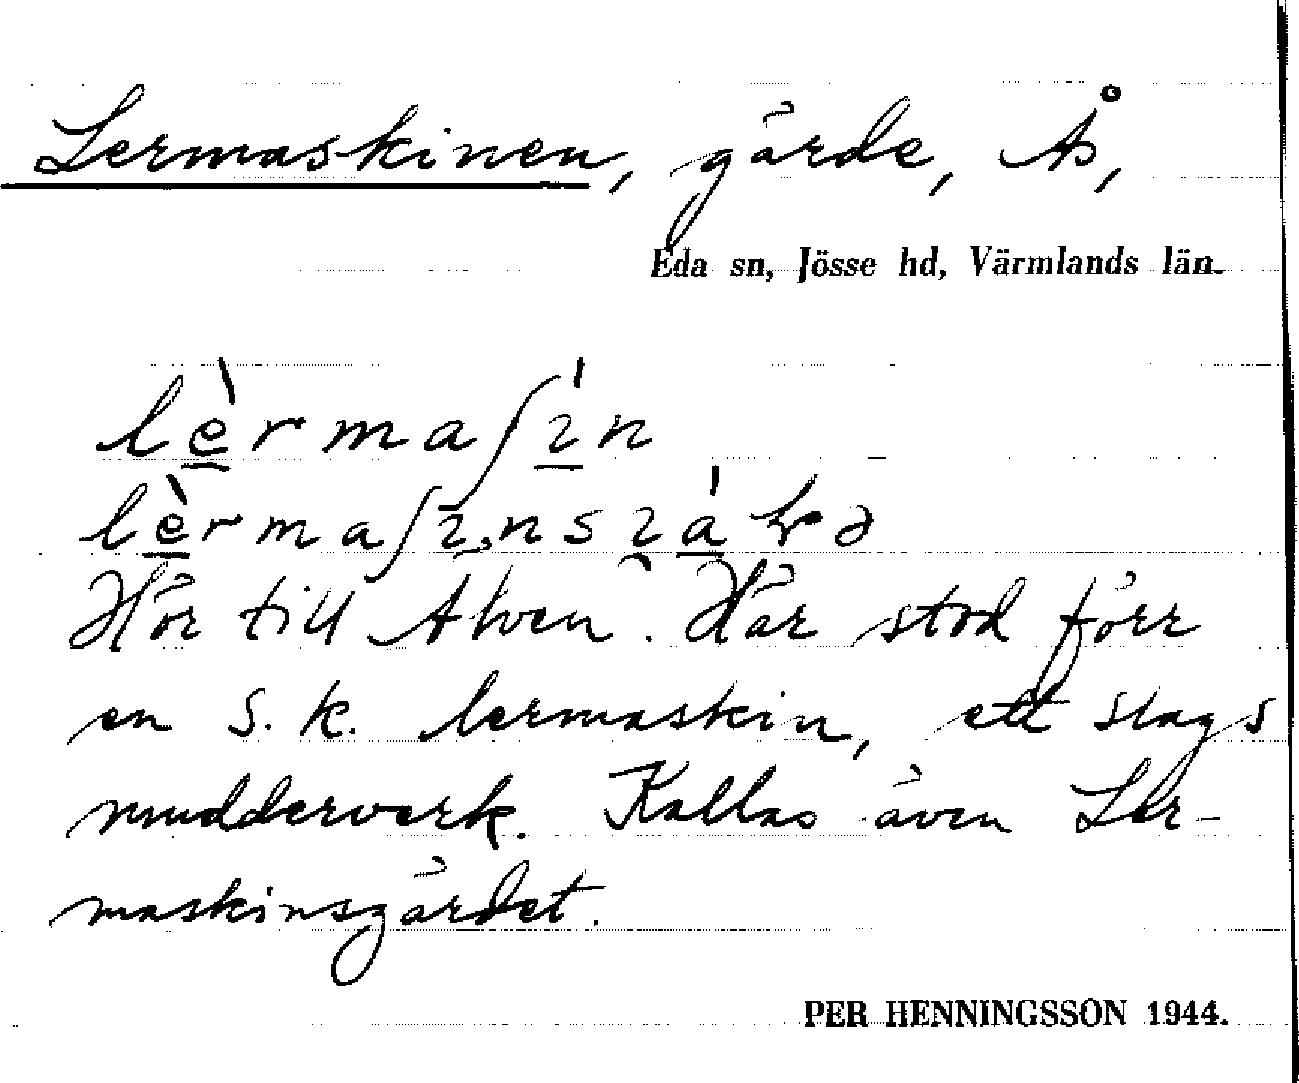 Lermaskinen, gärde, Ås,
Eda sn, Jösse hd, Värmlands län.
lèrmaʃín
lèrmaʃɪnsɪáɽə
Hör till Älven. Här stod förr
en s.k. lermaskin, ett slags
mudderverk. Kallas även Ler-
maskinsgärdet.
PER HENNINGSSON 1944.